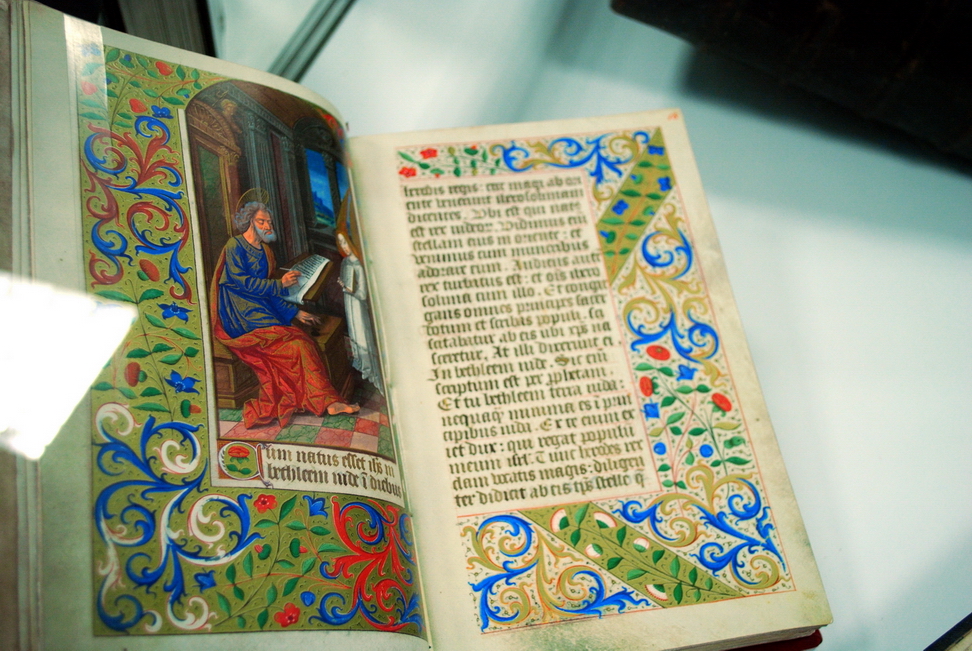 Cum natus esset ihs in
bethleem iude ĩ diebus
herodis regis: ecce magi ab ori
ente venerunt iherosolimam
dicentes. Vbi est qui natꝰ
est rex iudeoꝝ. Vidimus eñi
stellam eius in oriente: et
venimus cum muneribus
adorare eum. Audiens aut̃
rex turbatus est: et oĩs ihero
solima cum illo. Et congre
gans omnes principes sacer
dotum et scribas populi. sci
scitabatur ab eis ubi xp̃s na
sceretur. At illi dixerunt ei.
In bethleem iude. Sic eñi
scriptum est per ꝓphetam.
Et tu bethleem terra iuda:
nequaq̃ minima es ĩ prin
cipibus iuda. Ex te enim ex
iet dux: qui regat populũ
meum isrl̃. Tunc herodes vo
clam vocatis magis: diligen
ter didicit ab eis tp̃s stelle q̃